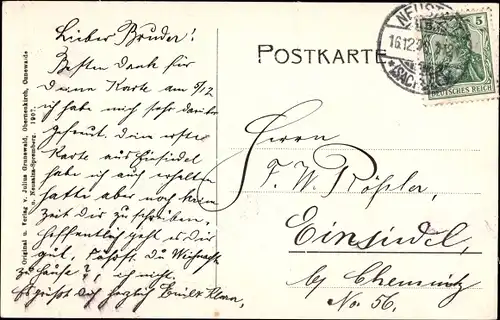 Lieber Bruder!
Besten Dank für
Deine Karte am 5/12
ich habe mich sehr darüber
gefreut. Deine erste
Karte aus Einsiedel
habe ich auch erhalten
hatte aber noch keine
Zeit Dir zu schreiben.
Hoffentlich geht es Dir
gut. Du Weihnacht
zu Hause?, ich nicht.
Es grüßt Dich herzlich
Original u. Verlag v. Julius Grunewald, Obernenkirch, Cunewalde
u. Neusalza-Spremberg. 1907.
POSTKARTE
NEUST
16.12.
(SACHSEN)
5
DEUTSCHES REICH
Herrn
F. W. Rößler,
Einsiedel,
by Chemnitz
No 56.